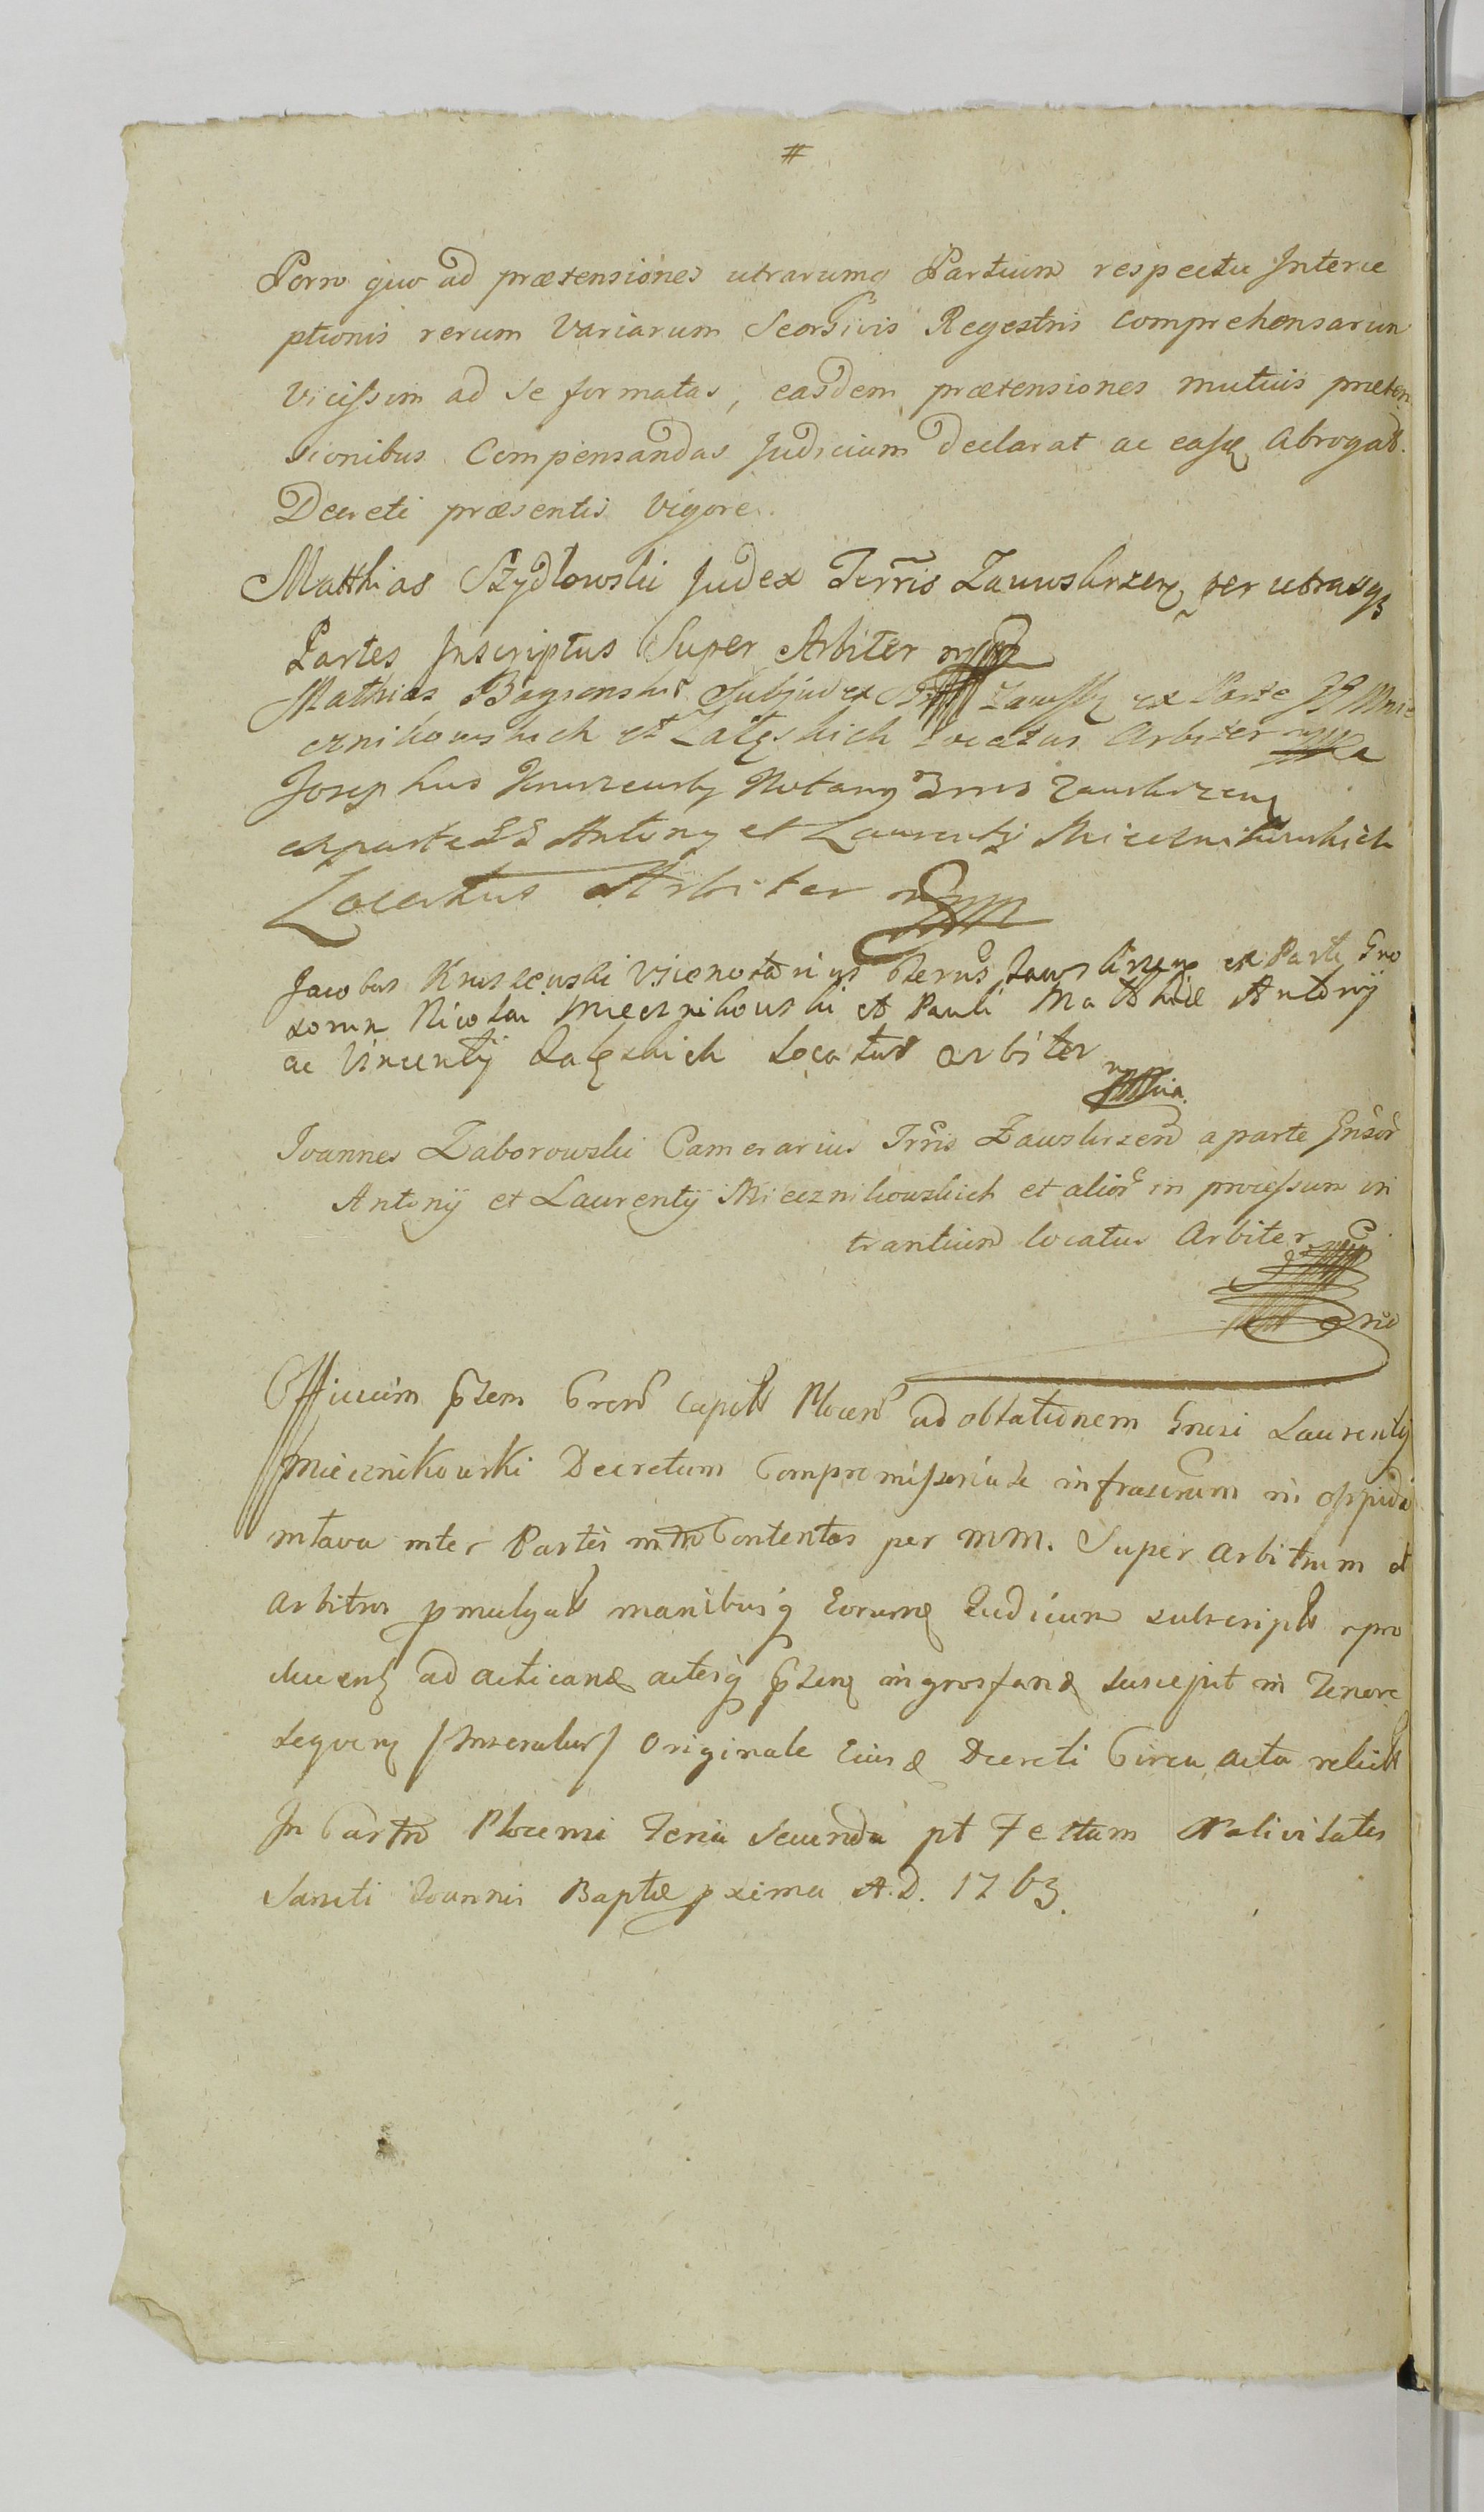 #
Porro quo ad prætensiones utrarumq Partium respectu Interce
ptionis rerum Variarum Seorsivis Regestris comprehensarum
Vicissim ad se formatas, easdem prætensiones mutuis præten
sionibus Compensandas Judicium declarat ac easq Abrogat.
Decreti præsentis Vigore.
Matthias Szydlowski Judex Terris Zawskrzen per utrasq
Partes Inscriptus Super Arbiter mpp
Mathias Subjudex Zawskr ex Parte Mie
cznikowskich et Załęskich Locatus Arbiter
Josephus Notary Trris Zawskrzen
ex parte Antony et Laurentij Miecznikowskich
Locatus Arbiter
Jacobus Kruszewski Vicenotarius Terris Zawskrzen ex Parte Gno
sorum Nicolai Miecznikowski et Pauli Mathiæ Antonij
ac Vincentij Załęskich Locatus arbiter
Ioannes Zaborowski Camerarius Trris Zawskrzen a parte Gnsor
Antonij et Laurentij Miecznikowskich et alior in processum in
trantium locatus Arbiter
Officium pntem Capit Plocen ad oblationem Gnosi Laurentij
Miecznikowski Decretum Compromissoriale infrascrum in oppido
Mlava inter Partes Contentas per MM. Super arbitrum et
arbitros pmulgat manibusq Eorumd Judicum subscript pro
ducent ad acticand actisq ingrossand suscepit in Tenore
sequen /Inseratur/ Originale Eiusd Decreti Circa acta relict
In Castro Plocensi Feria Secunda pt Festum Nativitatis
Sancti Ioannis Baptæ pxima A.D. 1763.